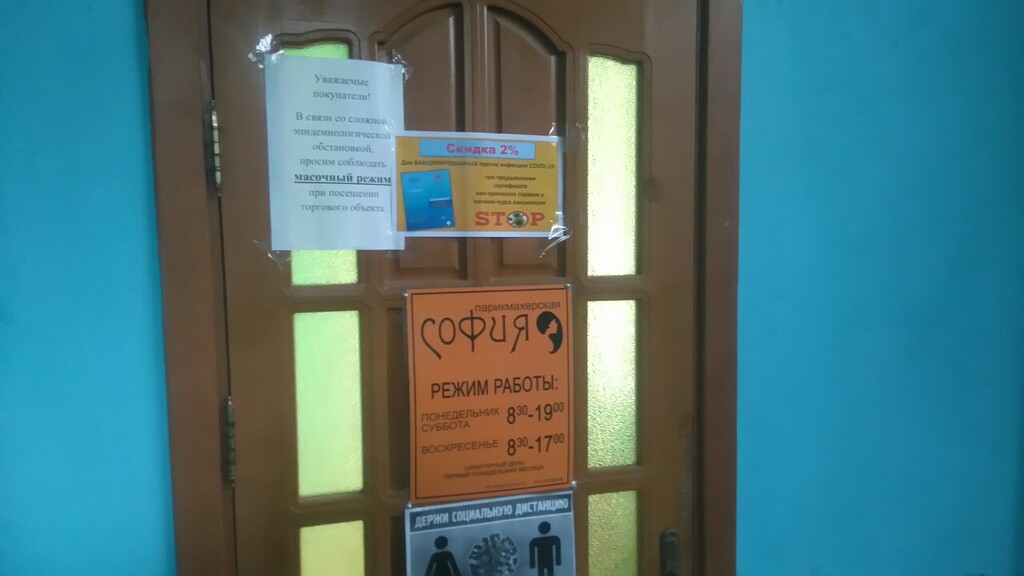 Уважаемые
покупатели!
В связи со сложной
эпидемиологической
обстановкой,
просим соблюдать
масочный режим
при посещении
торгового объекта.
Скидка 2%
Для ВАКЦИНИРОВАННЫХ против инфекции COVID-19
при предъявлении
сертификата
или оригинала справки о
полном курсе вакцинации
STOP
парикмахерская
СОФИЯ
РЕЖИМ РАБОТЫ:
ПОНЕДЕЛЬНИК
СУББОТА 8³⁰-19⁰⁰
ВОСКРЕСЕНЬЕ 8³⁰-17⁰⁰
САНИТАРНЫЙ ДЕНЬ
ПЕРВЫЙ ПОНЕДЕЛЬНИК МЕСЯЦА
ДЕРЖИ СОЦИАЛЬНУЮ ДИСТАНЦИЮ